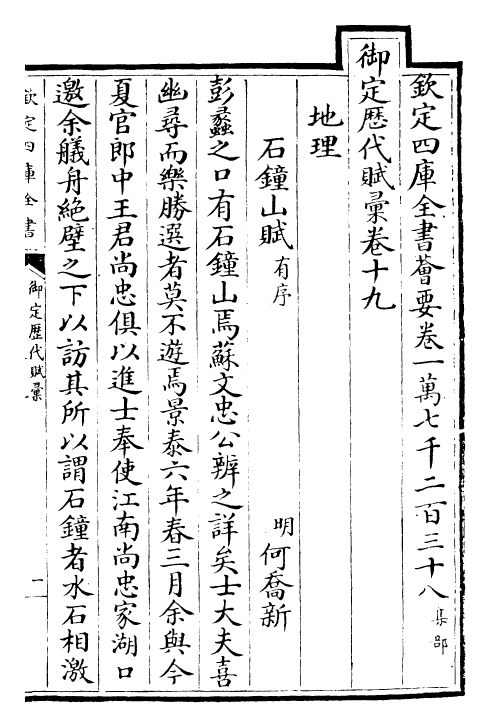 欽定四庫全書薈要卷一萬七千二百三十八 集部
御定歴代賦彙卷十九
地理
石鐘山賦 有序 明 何喬新
彭蠡之口有石鐘山焉蘇文忠公辨之詳矣士大夫喜
幽尋而樂勝選者莫不遊焉景泰六年春三月余與今
夏官郎中王君尚忠俱以進士奉使江南尚忠家湖口
邀余艤舟絶壁之下以訪其所以謂石鐘者水石相激
欽定四庫全書
御定歴代賦彙
一